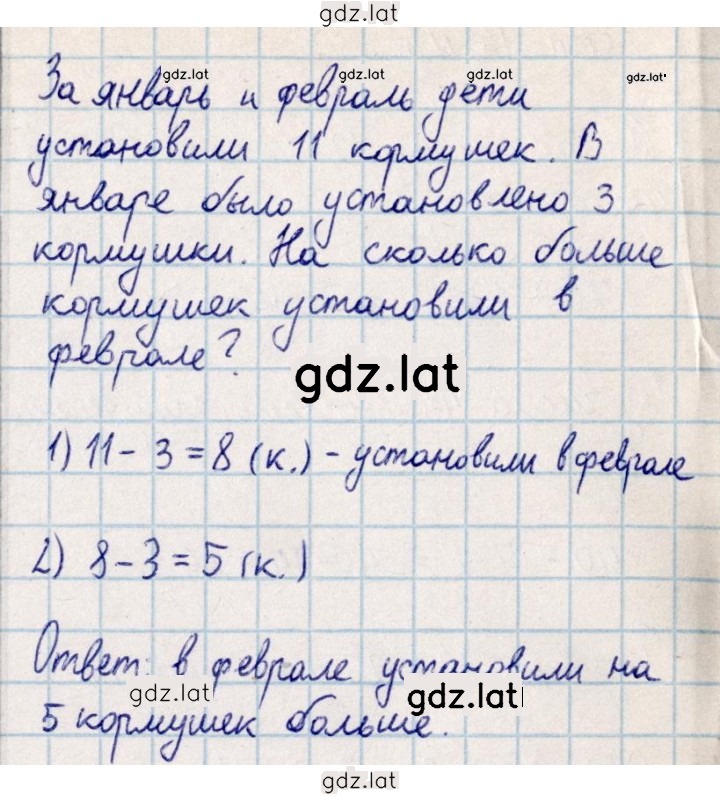 gdz.lat
gdz.lat gdz.lat gdz.lat
За январь и февраль дети
установили 11 кормушек. В
январе было установлено 3
кормушки. На сколько больше
кормушек установили в
феврале?
gdz.lat
1) 11 - 3 = 8 (к.) - установили в феврале
2) 8 - 3 = 5 (к.)
Ответ: в феврале установили на
gdz.lat gdz.lat
5 кормушек больше.
gdz.lat